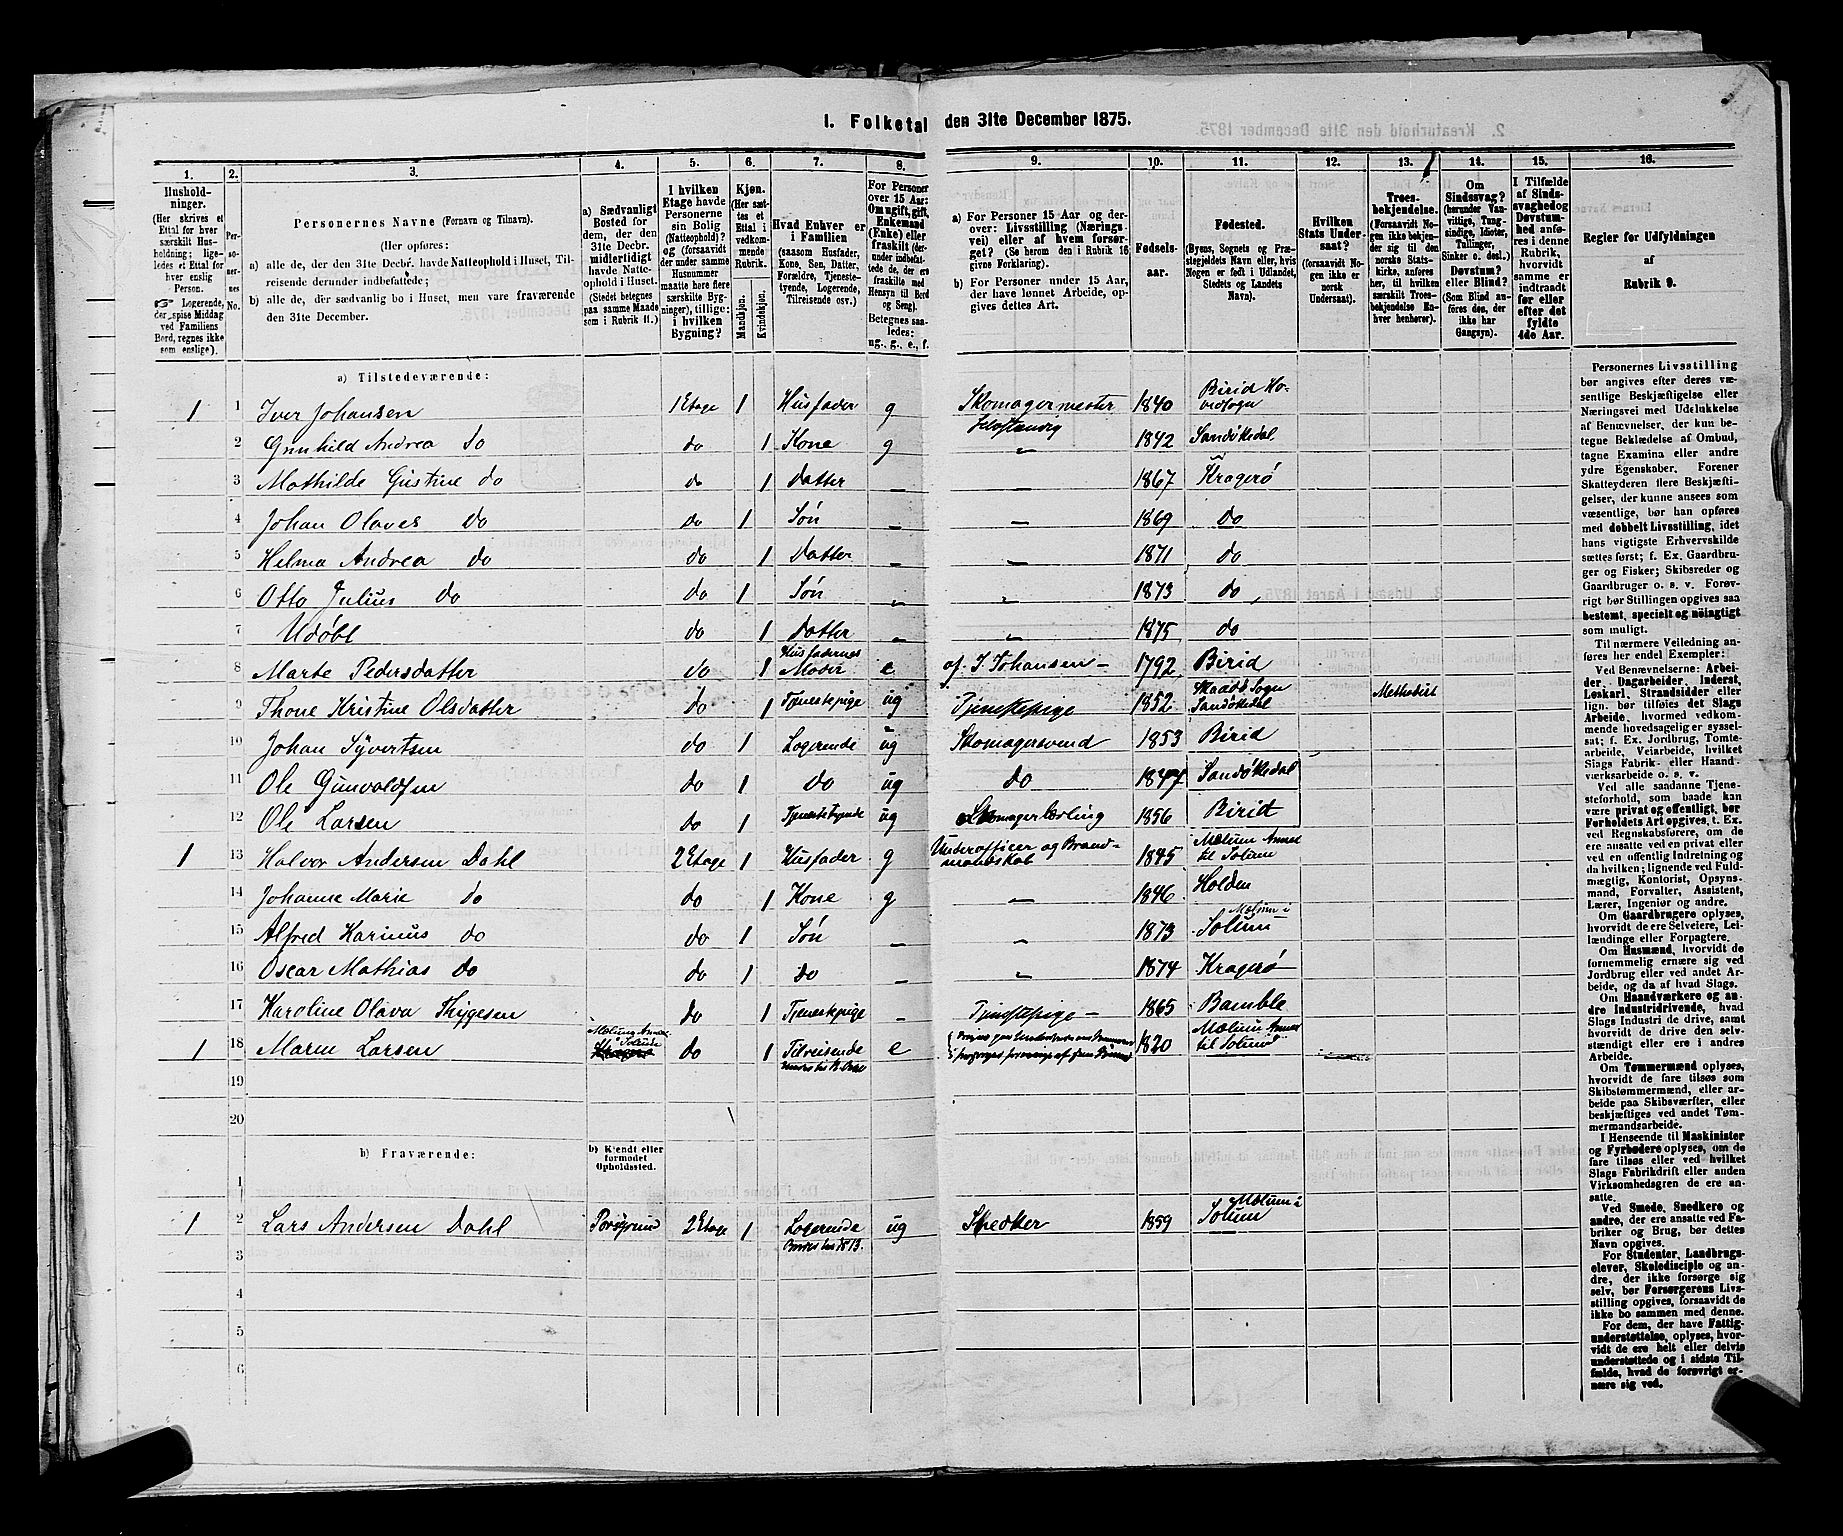 1. Folketal den 31te December 1875.
1.
Hushold-
ninger.
(Her skrives et
Ettal for hver
særskilt Hus-
holdning; lige-
ledes et Ettal for
hver enslig
Person.
☞ Logerende,
der spise Middag
ved Familiens
Bord, regnes ikke
som enslige).
2.
Per-
soner-
nes
No.
3.
Personernes Navne (Fornavn og Tilnavn).
(Her opføres:
a) alle de, der den 31te Decbr. havde Natteophold i Huset, Til-
reisende derunder indbefattede;
b) alle de, der sædvanlig bo i Huset, men vare fraværende
den 31te December.
4.
a) Sædvanligt
Bosted for
dem, der den
31te Decbr.
midlertidigt
havde Natte-
ophold i Huset.
(Stedet betegnes
paa samme Maade
som i Rubrik 11.)
5.
I hvilken
Etage havde
Personerne
sin Bolig
(Natteophold)?
og (forsaavidt
der under samme
Husnummer
maatte høre flere
særskilte Byg-
ninger), tillige:
i hvilken
Bygning?
6.
Kjøn.
(Her sæt-
tes et
Ettal i
vedkom-
mende
Rubrik.
Mandkjøn.
Kvindekjøn.
7.
Hvad Enhver er
i Familien
(saasom Husfader,
Kone, Søn, Datter,
Forældre, Tjeneste-
tyende, Logerende,
Tilreisende osv.)
8.
For Personer
over 15 Aar:
Om ugift, gift,
Enkemand
(Enke) eller
fraskilt (der-
under indbefat-
tede de, der ere
fraskilte med
Hensyn til Bord
og Seng).
Betegnes saa-
ledes:
ug., g., e., f.
9.
a) For Personer 15 Aar og der-
over: Livsstilling (Nærings-
vei) eller af hvem forsør-
get? (Se herom den i Rubrik 16
givne Forklaring).
b) For Personer under 15 Aar,
der have lønnet Arbeide, op-
gives dettes Art.
10.
Fødsels-
aar.
11.
Fødested.
(Byens, Sognets og Præ-
stegjeldets Navn eller, hvis
Nogen er født i Udlandet,
Stedets og Landets
Navn).
12.
Hvilken
Stats Under-
saat?
(forsaavidt No-
gen ikke er
norsk
Undersaat).
13.
Troes-
bekjendelse.
(Forsaavidt No-
gen ikke bekjen-
der sig til den
norske Stats-
kirke, anføres
her, til hvilken
særskilt Troes-
bekjendelse En-
hver henhører).
14.
Om
Sindssvag?
(herunder Van-
vittige, Tung-
sindige, Idioter,
Tullinger,
Sinker o. desl.)
Døvstum?
eller Blind?
(Som Blind an-
føres de, der
ikke har
Gangsyn).
15.
I Tilfælde
af Sinds-
svaghed og
Døvstum-
hed anfø-
res i denne
Rubrik,
hvorvidt
samme er
indtraadt
før eller
efter det
fyldte
4de Aar.
16.
Regler for Udfyldningen
af
Rubrik 9.
a) Tilstedeværende:
1 1 Iver Johansen 1 Etage 1 Husfader g Skomagermester Selvstændig 1840 Birid Hovedsogn
2 Gunhild Andrea do do 1 Kone g „ 1842 Sandøkedal
3 Mathilde Gustine do do 1 Datter – – 1867 Kragerø
4 Johan Olaves do do 1 Søn – – 1869 do
5 Helma Andrea do do 1 Datter – – 1871 do
6 Otto Julius do do 1 Søn „ „ 1873 do
7 Udøbt do 1 Datter – „ 1875 do
8 Marte Pedersdatter do 1 Husfaderens Moder e af I. Johansen – 1792 Birid
9 Thone Kristine Olsdatter do 1 Tjenestepige ug Tjenestepige 1852 Skaadø Sogn Sandøkedal Methodist
10 Johan Syvertsen do 1 Logerende ug Skomagersvend 1853 Birid
11 Ole Gunvaldsen do 1 do ug do 1847 Sandøkedal
12 Ole Larsen do 1 Tjenestetyende ug Skomagerlærling 1856 Birid
1 13 Halvor Andersen Dahl 2 Etage 1 Husfader g Underofficer og Brandmandskab 1845 Mælum Annex til Solum
14 Johanne Marie do do 1 Kone g – 1846 Holden
15 Alfred Karinus do do 1 Søn – – 1873 Mælum i Solum
16 Oscar Mathias do do 1 do – „ 1874 Kragerø
17 Karoline Olava Thygesen do 1 Tjenestepige – Tjenestepige – 1865 Bamble
1 18 Maren Larsen Mælum Annex i Solum do 1 Tilreisende e 1820 Mælum Annex til Solum
19
20
b) Fraværende:
b) Kjendt eller
formodet
Opholdssted.
1
1 2 Lars Andersen Dahl Porsgrund 2 Etage 1 Logerende ug Snedker 1859 Mælum i Solum
3
4
5
6
Personernes Livsstilling
bør angives efter deres væ-
sentlige Beskjæftigelse eller
Næringsvei med Udelukkelse
af Benævnelser, der kun be-
tegne Beklædelse af Ombud,
tagne Examina eller andre
ydre Egenskaber. Forener
Skatteyderen flere Beskjæfti-
gelser, der kunne ansees som
væsentlige, bør han opføres
med dobbelt Livsstilling, idet
hans vigtigste Erhvervskilde
sættes først; f. Ex. Gaardbru-
ger og Fisker; Skibsreder og
Gaardbruger o. s. v. Forøv-
rigt bør Stillingen opgives saa
bestemt, specielt og nöiagtigt
som muligt.
Til nærmere Veiledning an-
føres her endel Exempler:
Ved Benævnelserne: Arbei-
der, Dagarbeider, Inderst,
Løskarl, Strandsidder eller
lign. bør tilføies det Slags
Arbeide, hvormed vedkom-
mende hovedsagelig er syssel-
sat; f. Ex. Jordbrug, Tomte-
arbeide, Veiarbeide, hvilket
Slags Fabrik- eller Haand-
værksarbeide o. s. v.
Ved alle saadanne Tjene-
steforhold, som baade kan
være privat og offentligt, bør
Forholdets Art opgives, t. Ex.
ved Regnskabsførere, om de
ere ansatte ved en privat eller
ved en offentlig Indretning og
da hvilken; lignende ved Fuld-
mægtig, Kontorist, Opsyns-
mand, Forvalter, Assistent,
Lærer, Ingeniør og andre.
Om Gaardbrugere oplyses,
hvorvidt de ere Selveiere, Lei-
lændinge eller Forpagtere.
Om Husmænd, hvorvidt de
fornemmelig ernære sig ved
Jordbrug eller ved andet Ar-
beide, og da af hvad Slags.
Om Haandværkere og an-
dre Industridrivende, hvad
Slags Industri de drive, samt
hvorvidt de drive den selv-
stændigt eller ere i andres
Arbeide.
Om Tømmermænd oplyses,
hvorvidt de fare tilsøs som
Skibstømmermænd, eller ar-
beide paa Skibsværfter, eller
beskjæftiges ved andet Tøm-
mermandsarbeide.
I Henseende til Maskinister
og Fyrbødere oplyses, om de
fare tilsøs eller ved hvilket
Slags Fabrikdrift eller anden
Virksomhedsgren de ere an-
satte.
Ved Smede, Snedkere og
andre, der ere ansatte ved Fa-
briker og Brug, bør dettes
Navn opgives.
For Studenter, Landbrugs-
elever, Skoledisciple og an-
dre, der ikke forsørge sig
selv, bør Forsørgerens Livs-
stilling opgives, forsaavidt de
ikke bo sammen med denne.
For dem, der have Fattig-
understøttelse, oplyses, hvor-
vidt de ere helt eller delvis
understøttede og i sidste Til-
fælde, hvad de forøvrigt er-
nære sig ved.